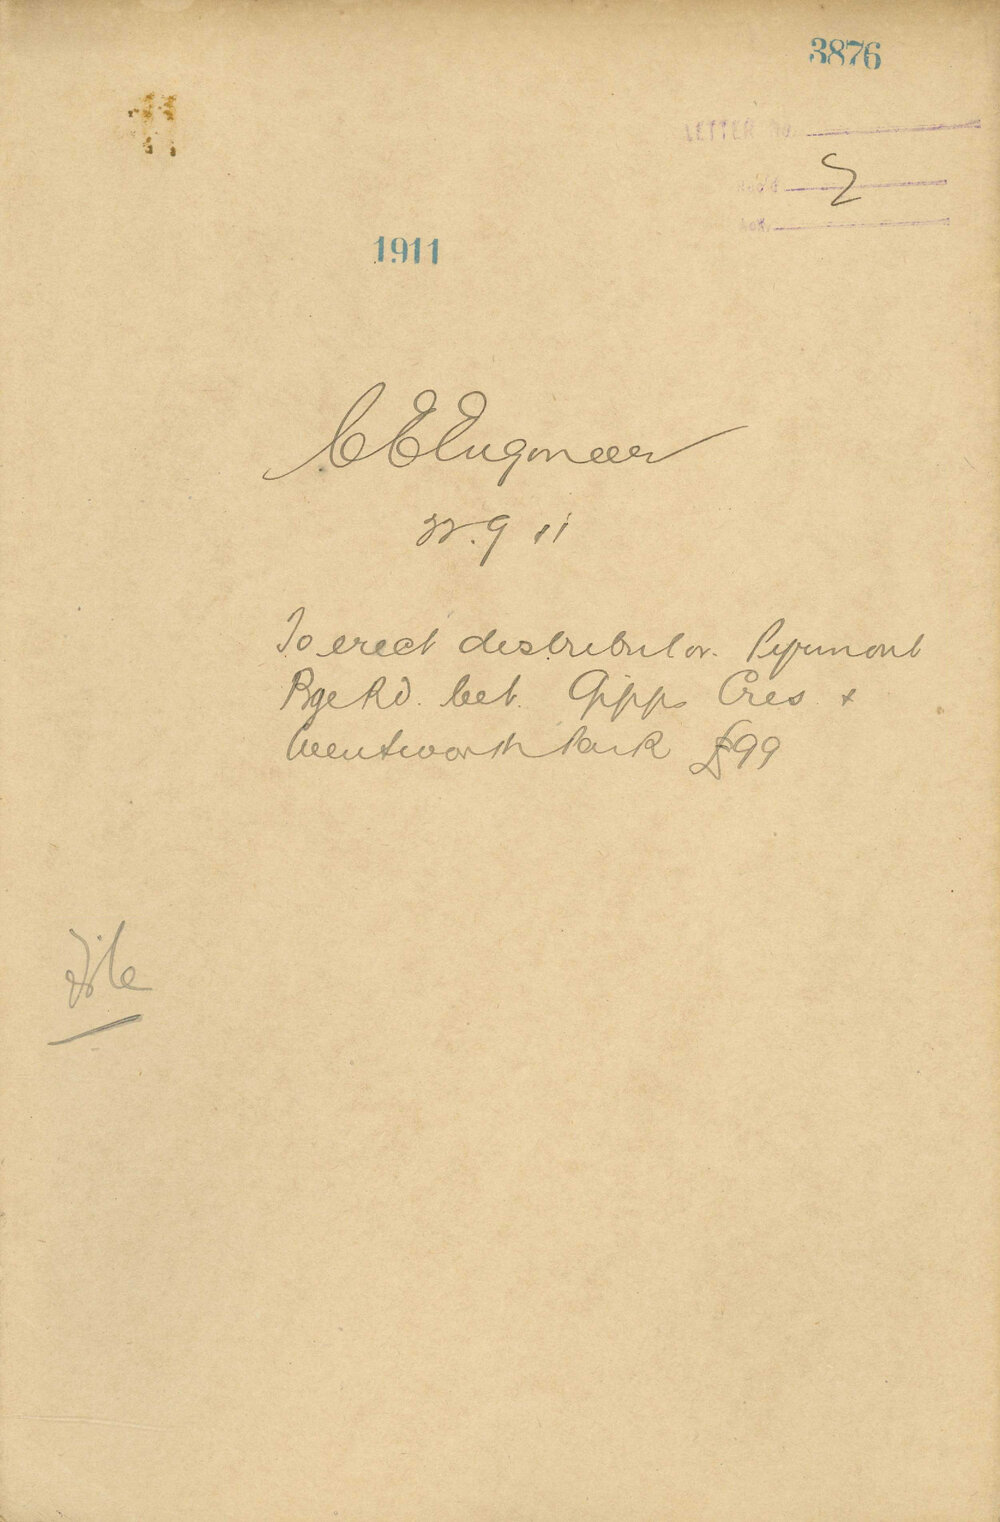 3876
LETTER No.
Rec'd
Ack.
1911
C E Engineer
22.9 11
To erect distributor. Pyrmont
Bge Rd. bet. Gipps Cres +
Wentworth Park £99
File